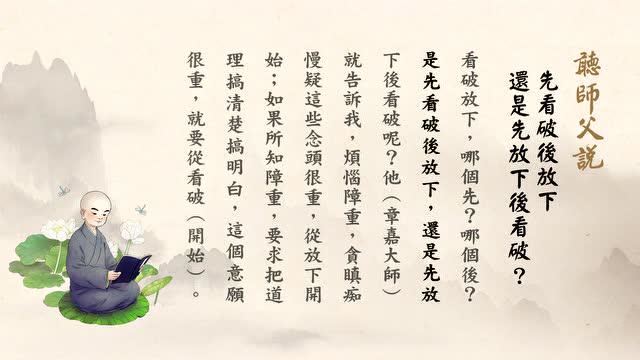 聽師父說
先看破後放下
還是先放下後看破？
看破放下，哪個先？哪個後？
是先看破後放下，還是先放
下後看破呢？他（章嘉大師）
就告訴我，煩惱障重，貪瞋痴
慢疑這些念頭很重，從放下開
始；如果所知障重，要求把道
理搞清楚搞明白，這個意願
很重，就要從看破（開始）。